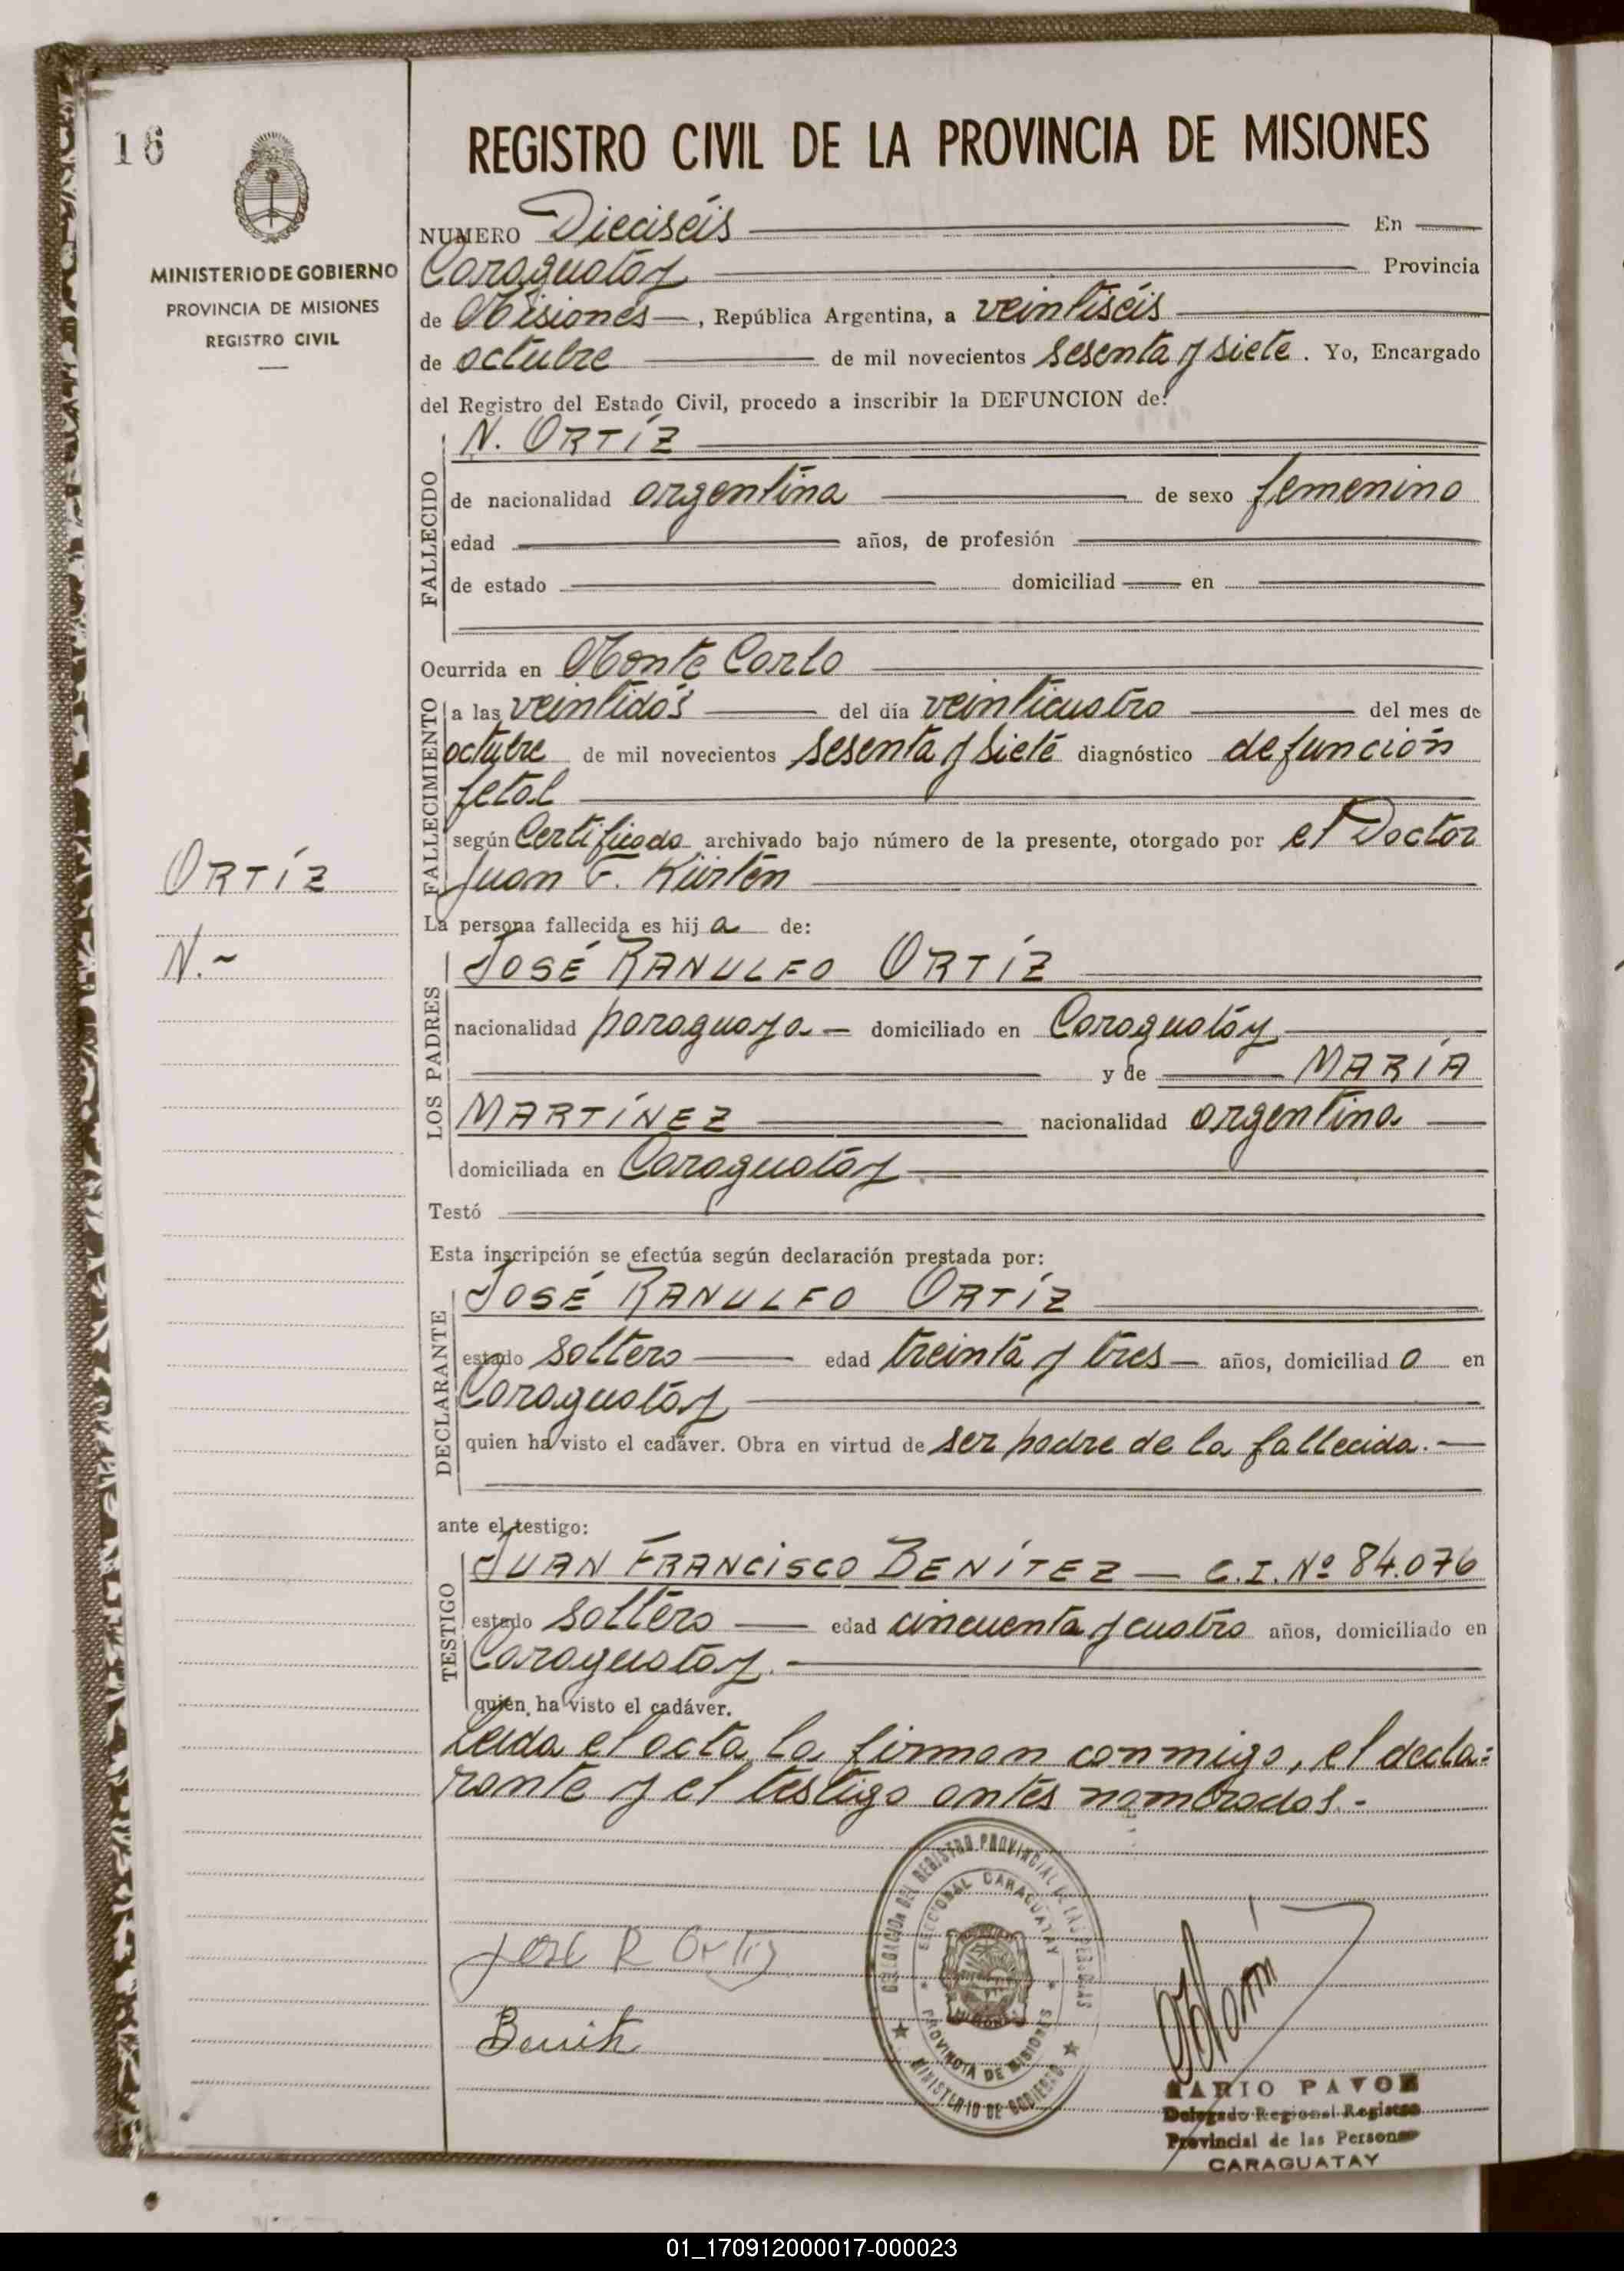 16
MINISTERIO DE GOBIERNO
PROVINCIA DE MISIONES
REGISTRO CIVIL
ORTÍZ
N.-
REGISTRO CIVIL DE LA PROVINCIA DE MISIONES
NUMERO Dieciséis En
Caraguatay Provincia
de Misiones, República Argentina, a veintiséis
de octubre de mil novecientos sesenta y siete. Yo, Encargado
del Registro del Estado Civil, procedo a inscribir la DEFUNCION de:
N. ORTÍZ
FALLECIDO
de nacionalidad argentina de sexo femenino
edad años, de profesión
de estado domiciliad en
Ocurrida en Monte Carlo
FALLECIMIENTO
a las veintidós del día veinticuatro del mes de
octubre de mil novecientos sesenta y siete diagnóstico defunción
fetal
según Certificado archivado bajo número de la presente, otorgado por el Doctor
Juan F. Kürten
La persona fallecida es hija de:
LOS PADRES
JOSÉ RANULFO ORTÍZ
nacionalidad paraguaya domiciliado en Caraguatay
y de MARÍA
MARTÍNEZ nacionalidad argentina
domiciliada en Caraguatay
Testó
Esta inscripción se efectúa según declaración prestada por:
DECLARANTE
JOSÉ RANULFO ORTÍZ
estado soltero edad treinta y tres años, domiciliado en
Caraguatay
quien ha visto el cadáver. Obra en virtud de ser padre de la fallecida.
ante el testigo:
TESTIGO
JUAN FRANCISCO BENÍTEZ - C.I. Nº 84.076
estado soltero edad cincuenta y cuatro años, domiciliado en
Caraguatay.
quien ha visto el cadáver.
Leída el acta la firman conmigo, el decla=
rante y el testigo antes nombrados.-
José R Ortiz
DELEGACION DEL REGISTRO PROVINCIAL DE LAS PERSONAS
SECCIONAL CARAGUATAY
PROVINCIA DE MISIONES
MINISTERIO DE GOBIERNO
MARIO PAVON
Delegado Regional Registro
Provincial de las Personas
CARAGUATAY
01_170912000017-000023